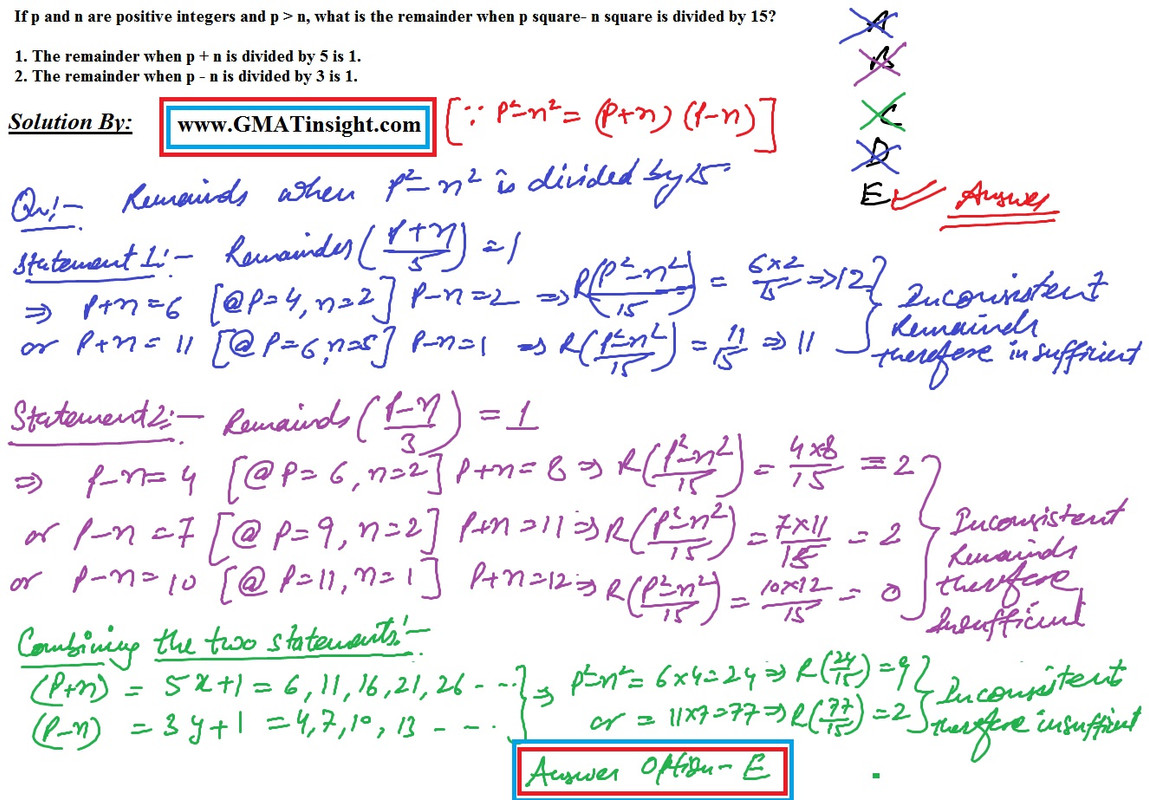 If p and n are positive integers and p > n, what is the remainder when p square- n square is divided by 15?
1. The remainder when p + n is divided by 5 is 1.
2. The remainder when p - n is divided by 3 is 1.
A
B
C
D
E Answer
Solution By: www.GMATinsight.com [∵ p²-n² = (p+n) (p-n)]
Qn:- Remainds when p²-n² is divided by 15
Statement 1:- Remainder (p+n/5) = 1
⇒ p+n=6 [@ p=4, n=2] p-n=2 ⇒ R(p²-n²/15) = 6x2/15 ⇒ 12
or p+n = 11 [@ p=6, n=5] p-n=1 ⇒ R(p²-n²/15) = 11/15 ⇒ 11
} Inconsistent
Remainds
therefore insufficient
Statement 2:- Remainds (p-n/3) = 1
⇒ p-n=4 [@ p=6, n=2] p+n=8 ⇒ R(p²-n²/15) = 4x8/15 = 2
or p-n=7 [@ p=9, n=2] p+n=11 ⇒ R(p²-n²/15) = 7x11/15 = 2
or p-n=10 [@ p=11, n=1] p+n=12 ⇒ R(p²-n²/15) = 10x12/15 = 0
} Inconsistent
Remainds
therefore
Insufficient
Combining the two statements:-
(p+n) = 5x+1 = 6, 11, 16, 21, 26 - - - } ⇒ p²-n² = 6x4=24 ⇒ R(24/15) = 9
(p-n) = 3y+1 = 4, 7, 10, 13 - - - or = 11x7=77 ⇒ R(77/15) = 2
} Inconsistent
therefore insufficient
Answer Option - E